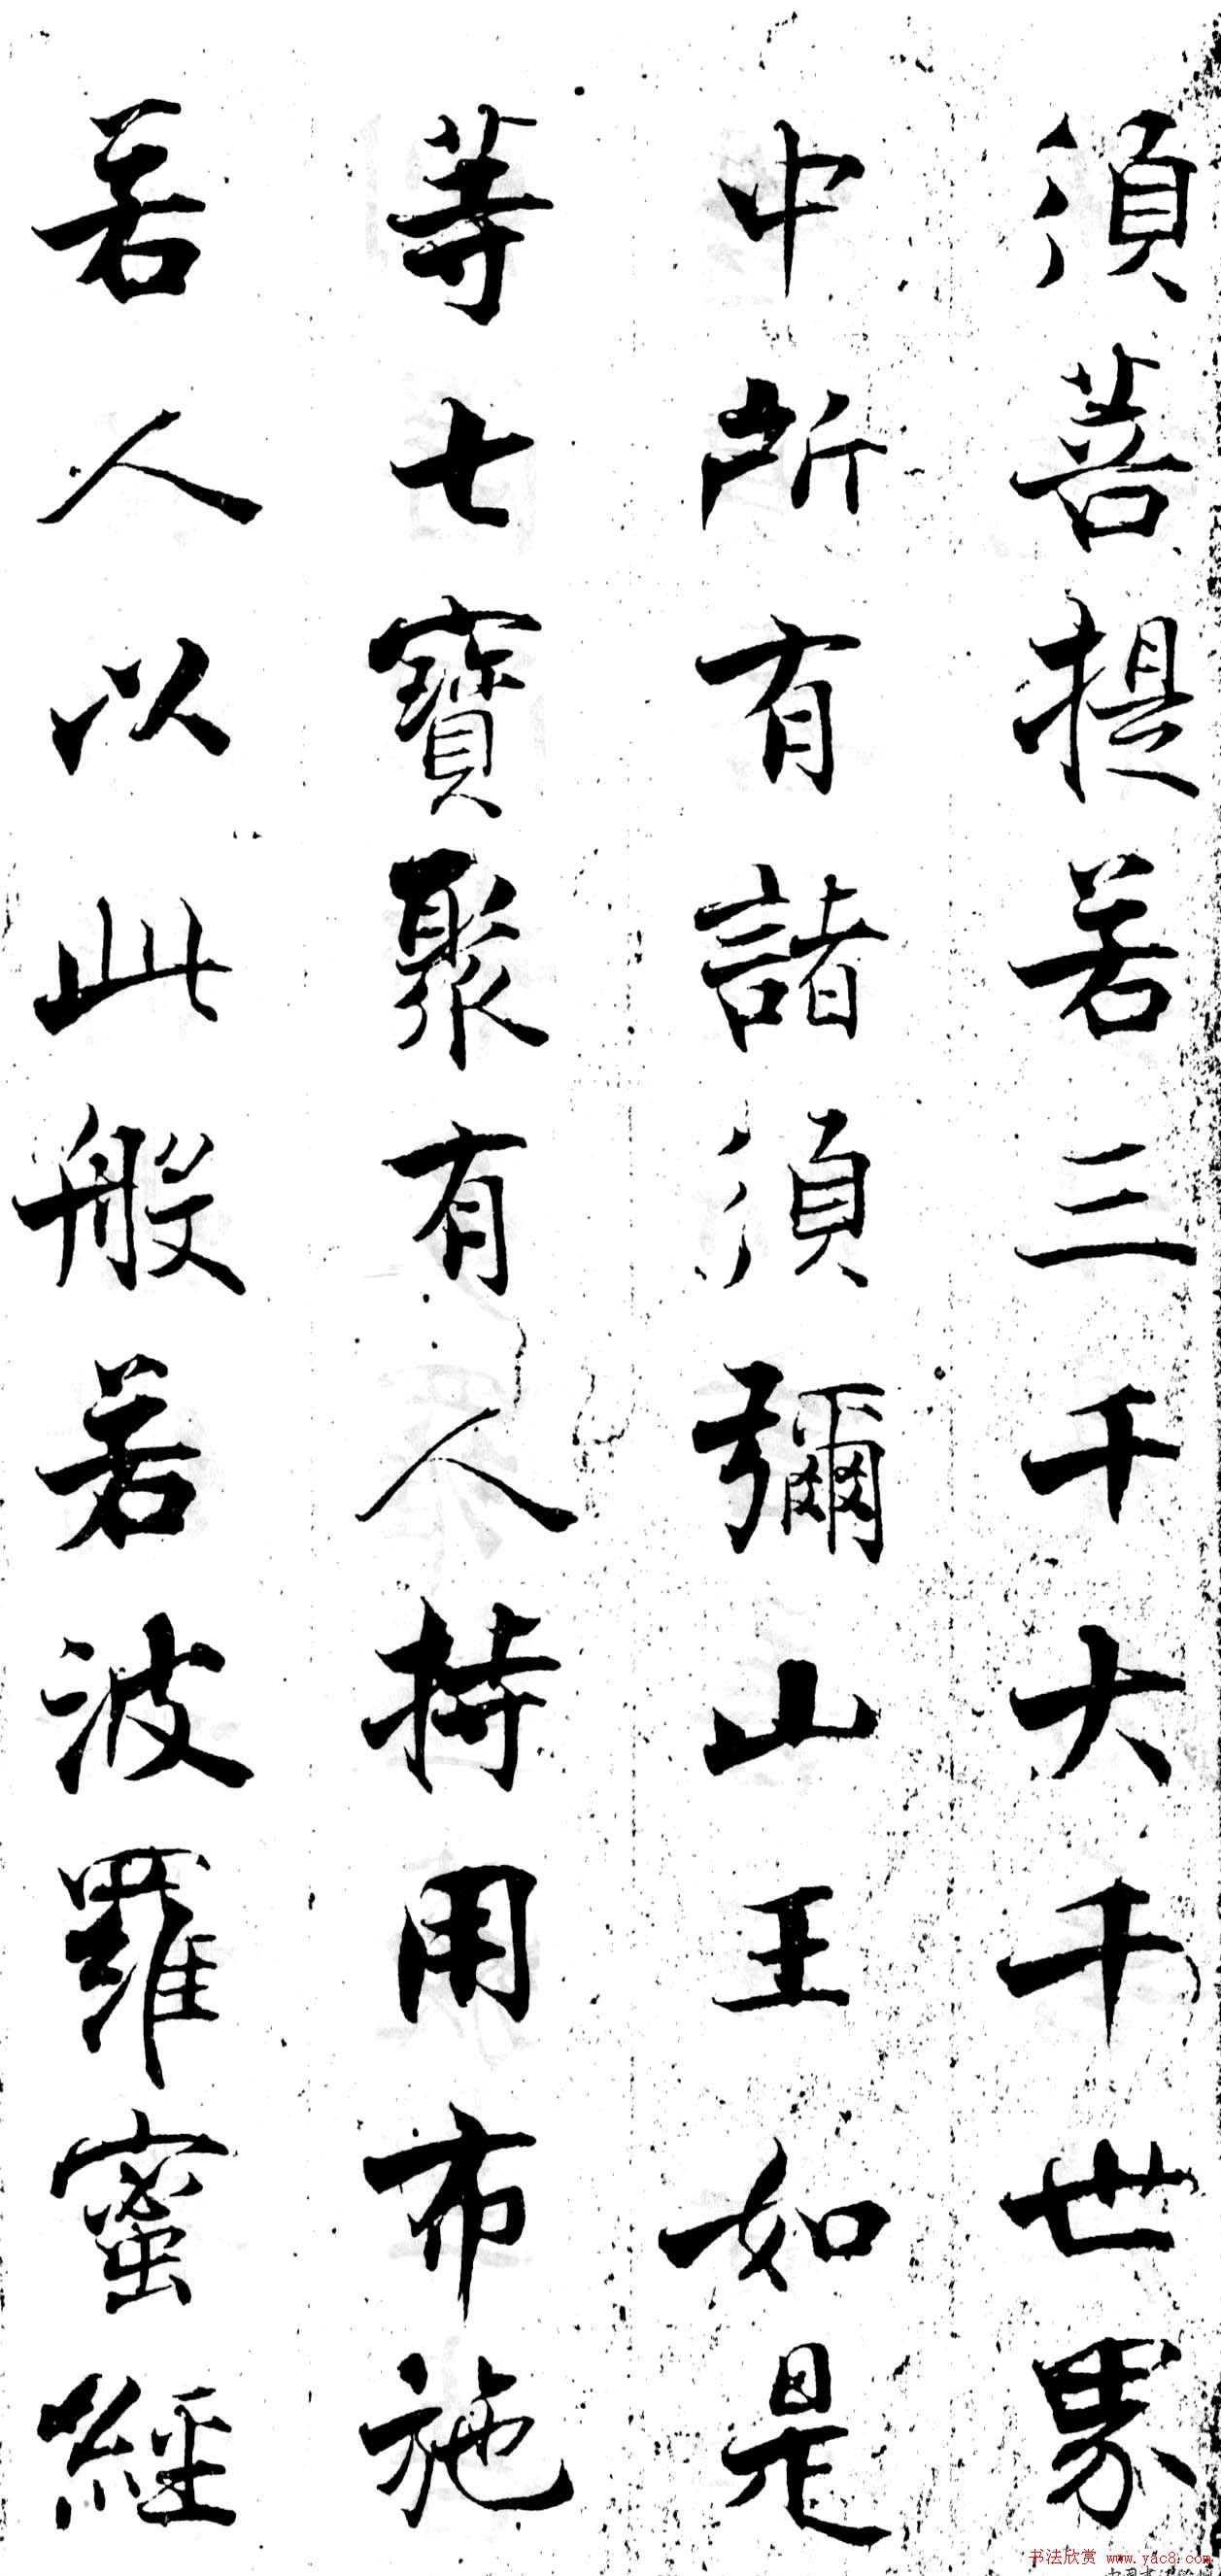 須菩提若三千大千世界
中所有諸須彌山王如是
等七寶聚有人持用布施
若人以此般若波羅蜜經
书法欣赏 www.yac8.com